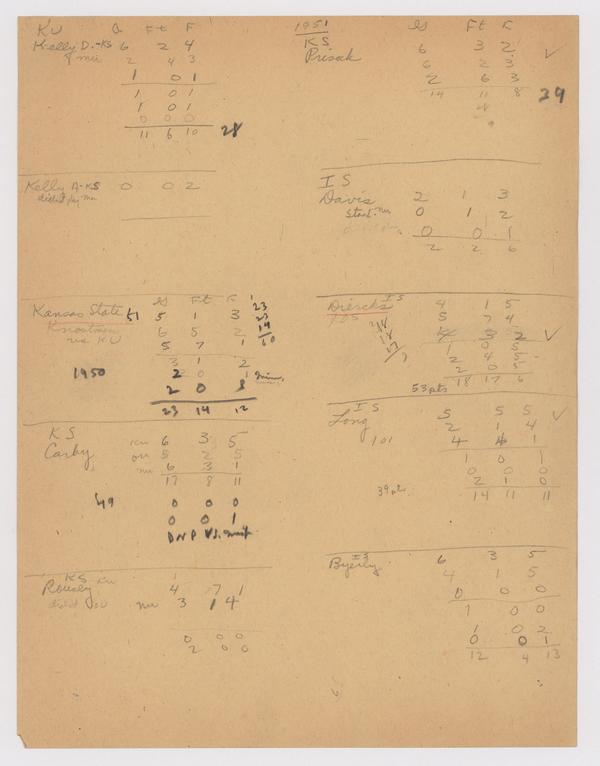 KU G Ft F
Kelly D.-KS 6 2 4
2 4 3
1 0 1
1 0 1
1 0 1
0 0 0
11 6 10 28
Kelly A-KS 0 0 2
Kansas State 51 G Ft F
5 1 3
vs KU 6 5 2
5 7 1
3 1 2
1950 2 0 1
2 0 3
23 14 12
23
23
14
60
KS
Carby 6 3 5
5 2 5
6 3 1
17 8 11
49 0 0 0
0 0 1
DNP
KS
Rousey 4 7 1
3 1 4
0 0 0
2 0 0
1951
KS G Ft F
Prisock 6 3 2
6 2 3
2 6 3
14 11 8 39
IS
Davis 2 1 3
0 1 2
0 0 1
2 2 6
Diercks IS 4 1 5
105 5 7 4
4 3 2
1 0 5
2 4 5
2 0 5
53 pts 18 17 6
IS
Long 5 5 5
2 1 4
101 4 4 1
1 0 1
0 0 0
2 1 0
39 pt. 14 11 11
IS
Byerly 6 3 5
4 1 5
0 0 0
1 0 0
1 0 2
0 0 1
12 4 13